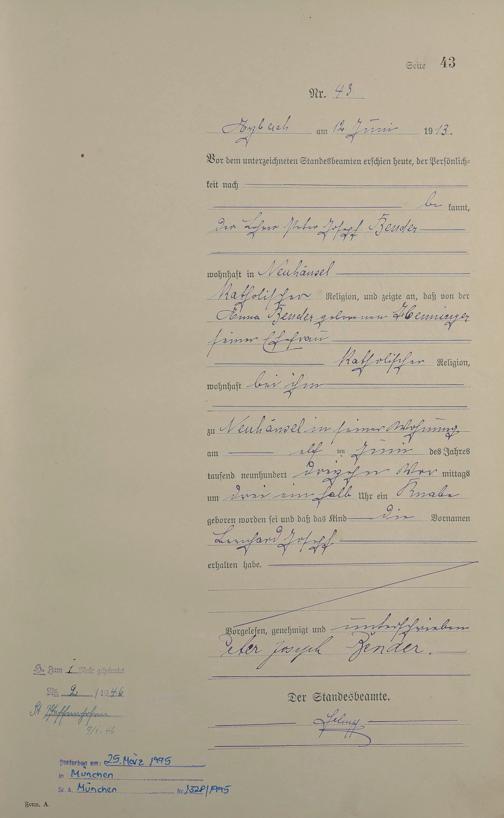 Seite 43
Nr. 43
am 12 Juni 1913.
Vor dem unterzeichneten Standesbeamten erschien heute, der Persönlich-
keit nach
be kannt,
der Lehrer Peter Josef Bender
wohnhaft in Neuhäusel
katholischer Religion, und zeigte an, daß von der
Anna Bender geborenen Henninger
seiner Ehefrau
katholischer Religion,
wohnhaft bei ihm
zu Neuhäusel in seiner Wohnung
am elf ten Juni des Jahres
tausend neunhundert dreizehn Vor mittags
um drei ein halb Uhr ein Knabe
geboren worden sei und daß das Kind die Vornamen
Josef
erhalten habe.
Vorgelesen, genehmigt und unterschrieben
Peter Joseph Bender.
Der Standesbeamte.
Zum 1 Male
Nr. 2 / 1946
9/1. 46
am: 25. März 1995
in München
St. A. München Nr. 1328/1995
Form. A.